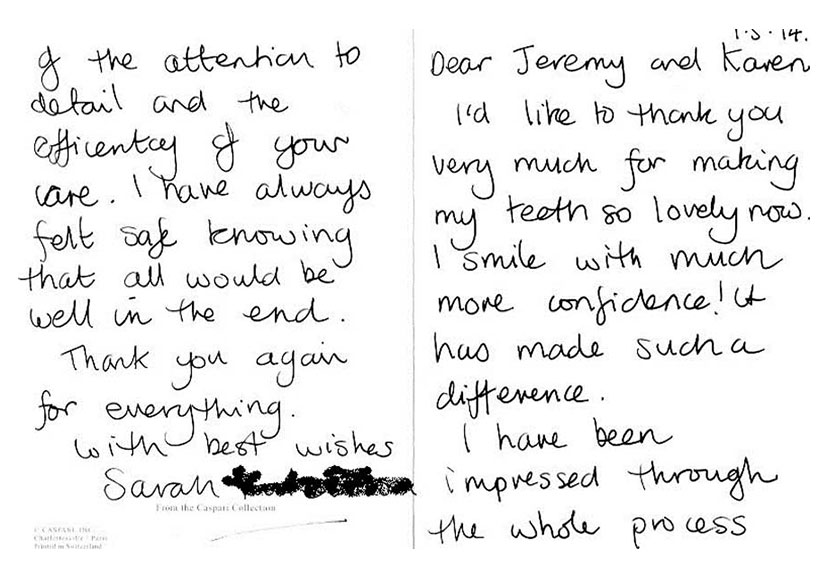 Dear Jeremy and Karen
I'd like to thank you
very much for making
my teeth so lovely now.
I smile with much
more confidence! It
has made such a
difference.
I have been
impressed through
the whole process
of the attention to
detail and the
efficentcy of your
care. I have always
felt safe knowing
that all would be
well in the end.
Thank you again
for everything.
with best wishes
Sarah
From the Caspari Collection
© CASPARI, INC.
Charlottesville / Paris
Printed in Switzerland